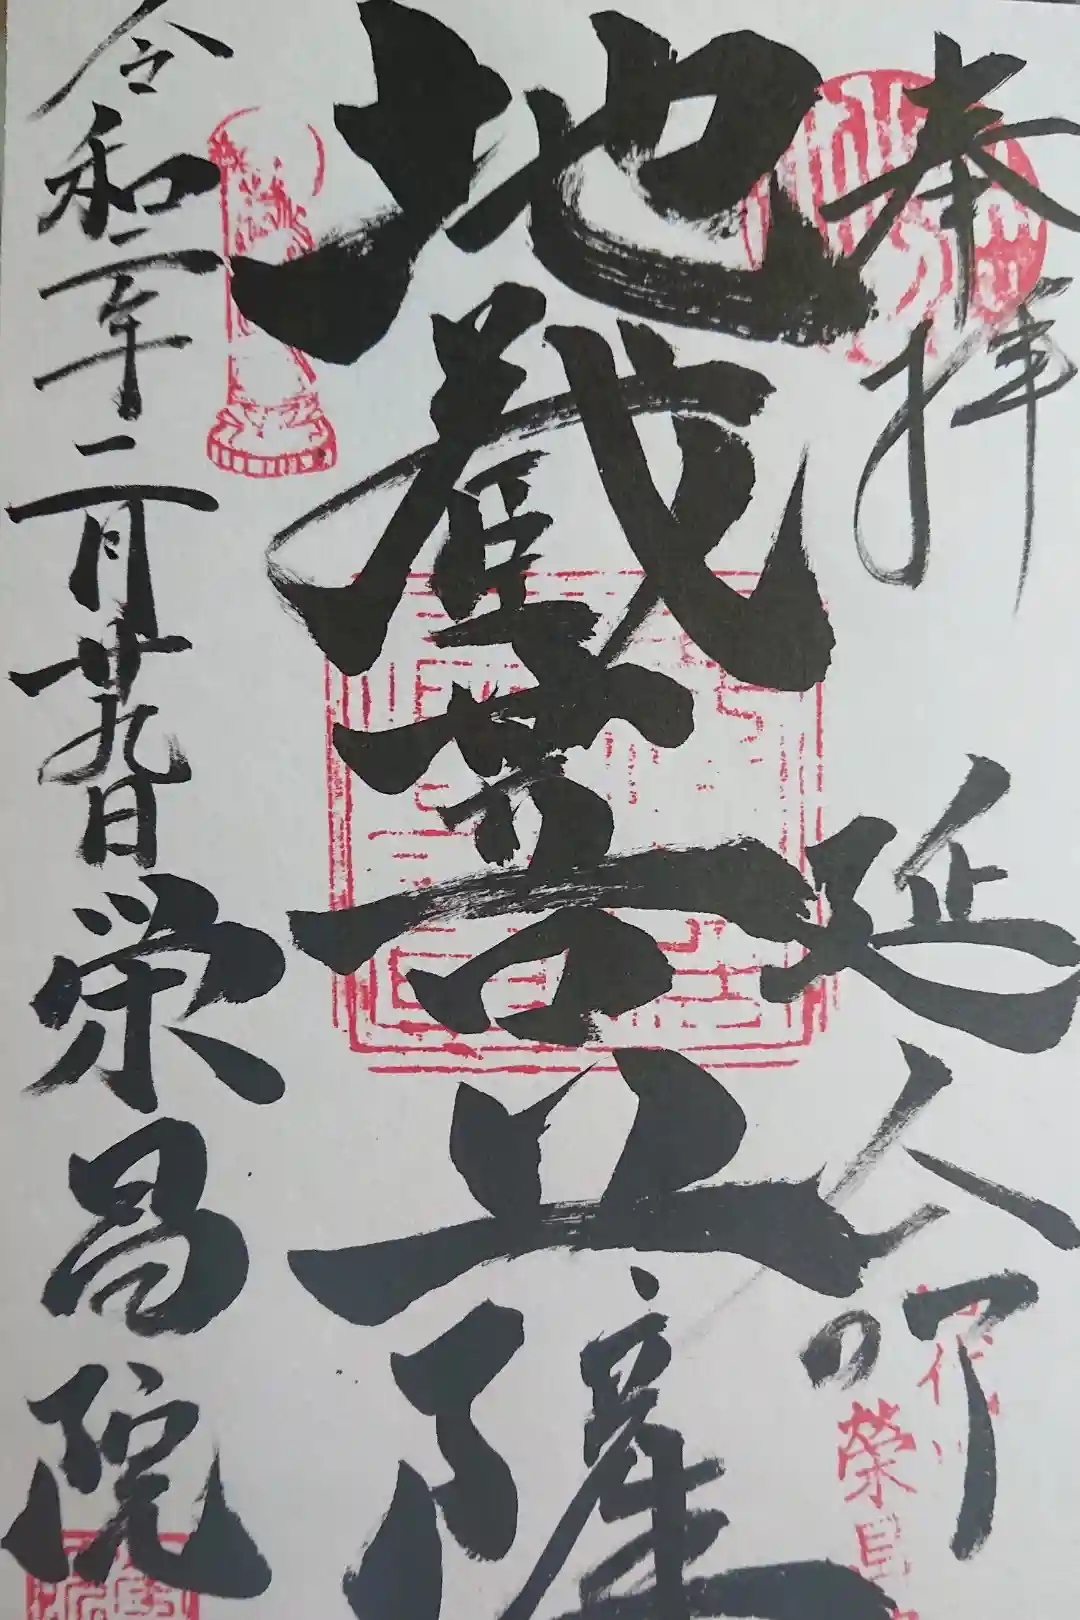 奉拝
延命
地蔵菩薩
令和二年二月廿九日
栄昌院